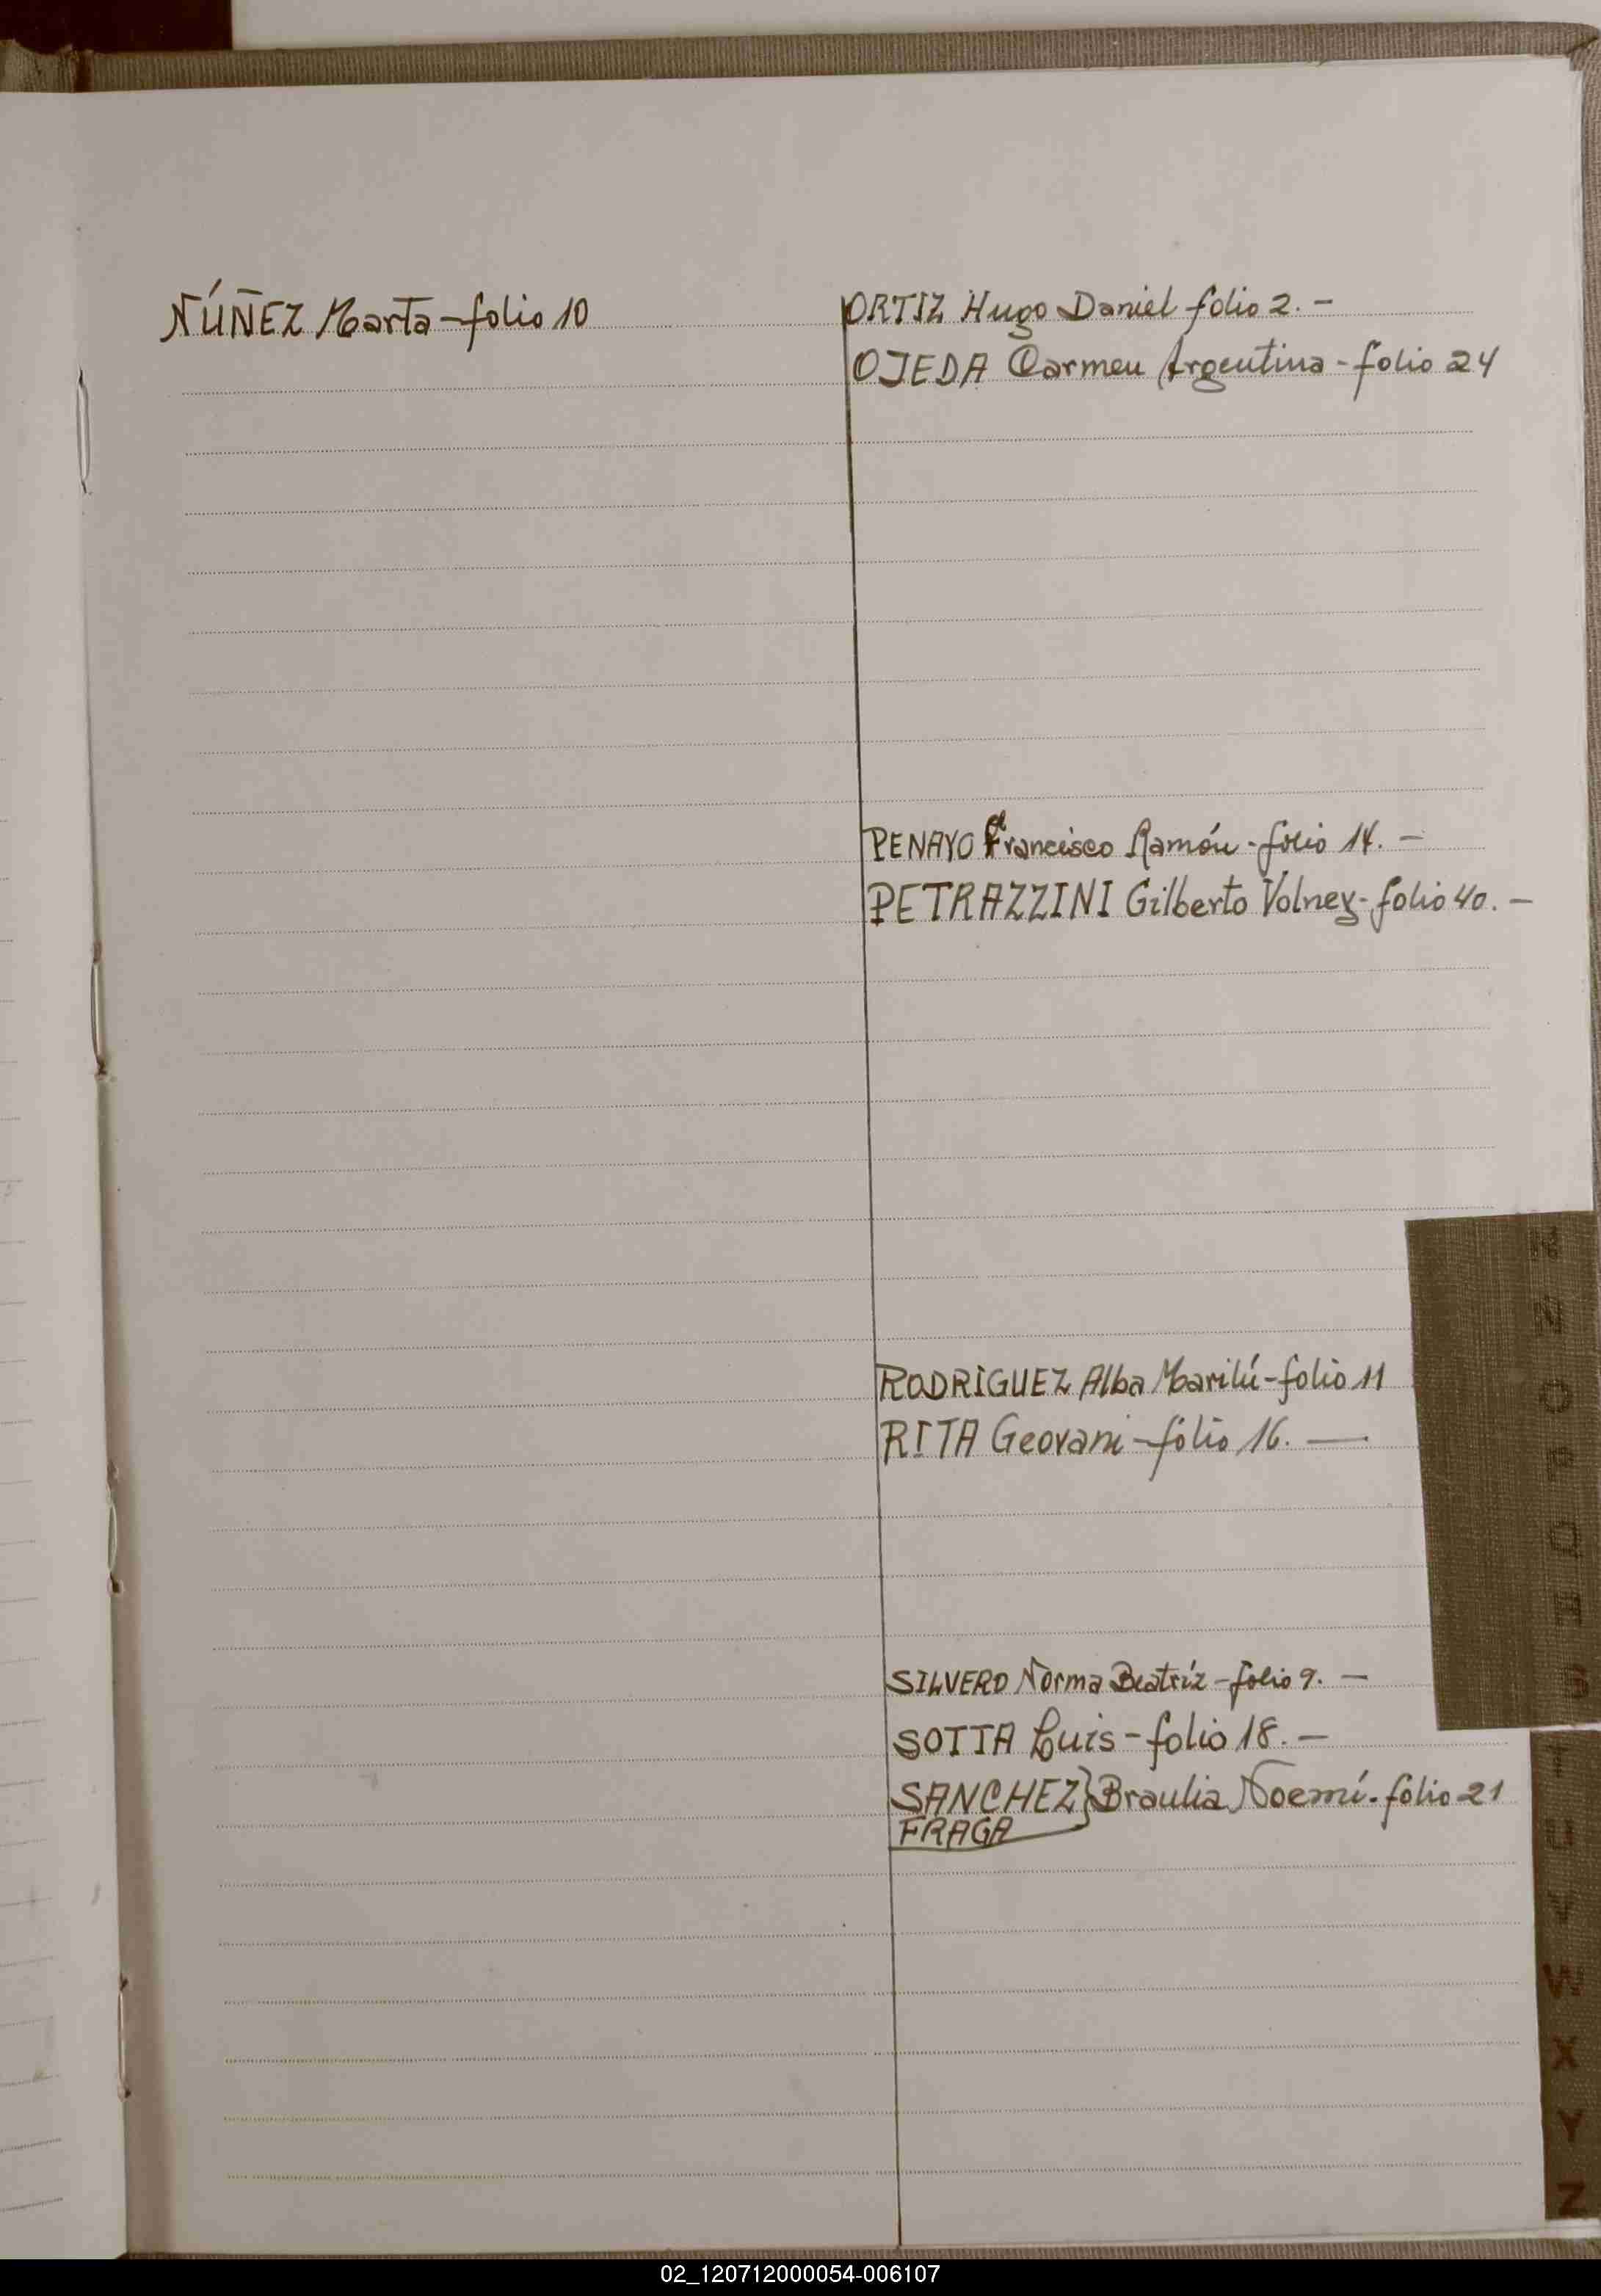 NÚÑEZ Marta - folio 10
ORTIZ Hugo Daniel folio 2. -
OJEDA Carmen Argentina - folio 24
PENAYO Francisco Ramón - folio 14. -
PETRAZZINI Gilberto Volney - folio 40. -
RODRIGUEZ Alba Marilú - folio 11
RITA Geovani - folio 16. —
SILVERO Norma Beatríz - folio 9. -
SOTTA Luis - folio 18. -
SANCHEZ } Braulia Noemí - folio 21
FRAGA
Ñ
N
O
P
Q
R
S
T
U
V
W
X
Y
Z
02_120712000054-006107